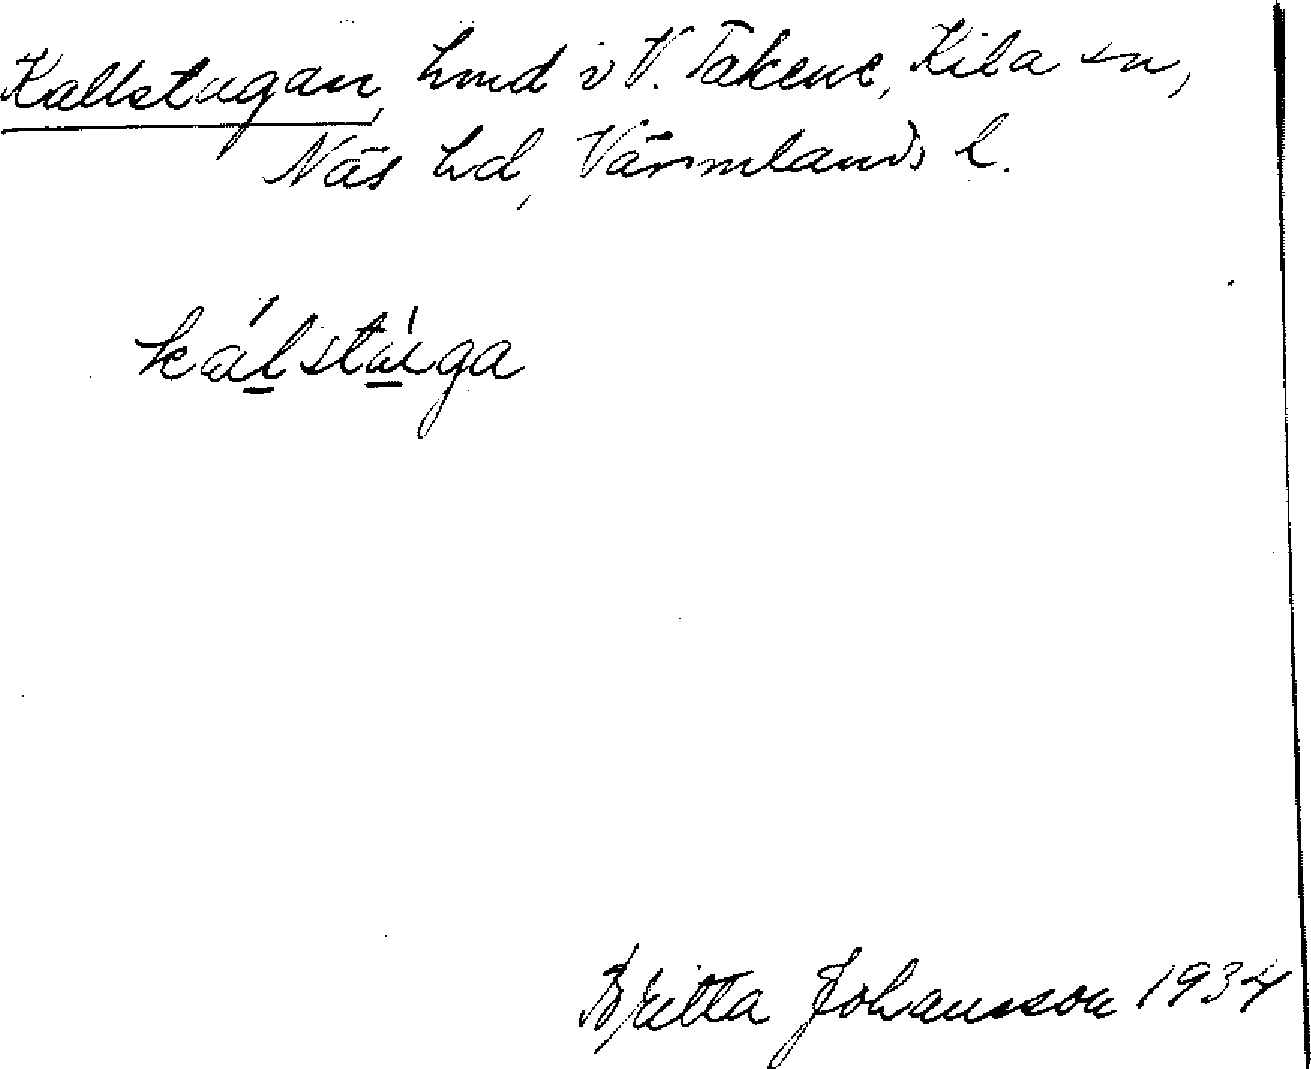 Kallstugan, hmd i V. Takene, Kila sn,
Näs hd, Värmlands l.
kálstúga
Britta Johansson 1934